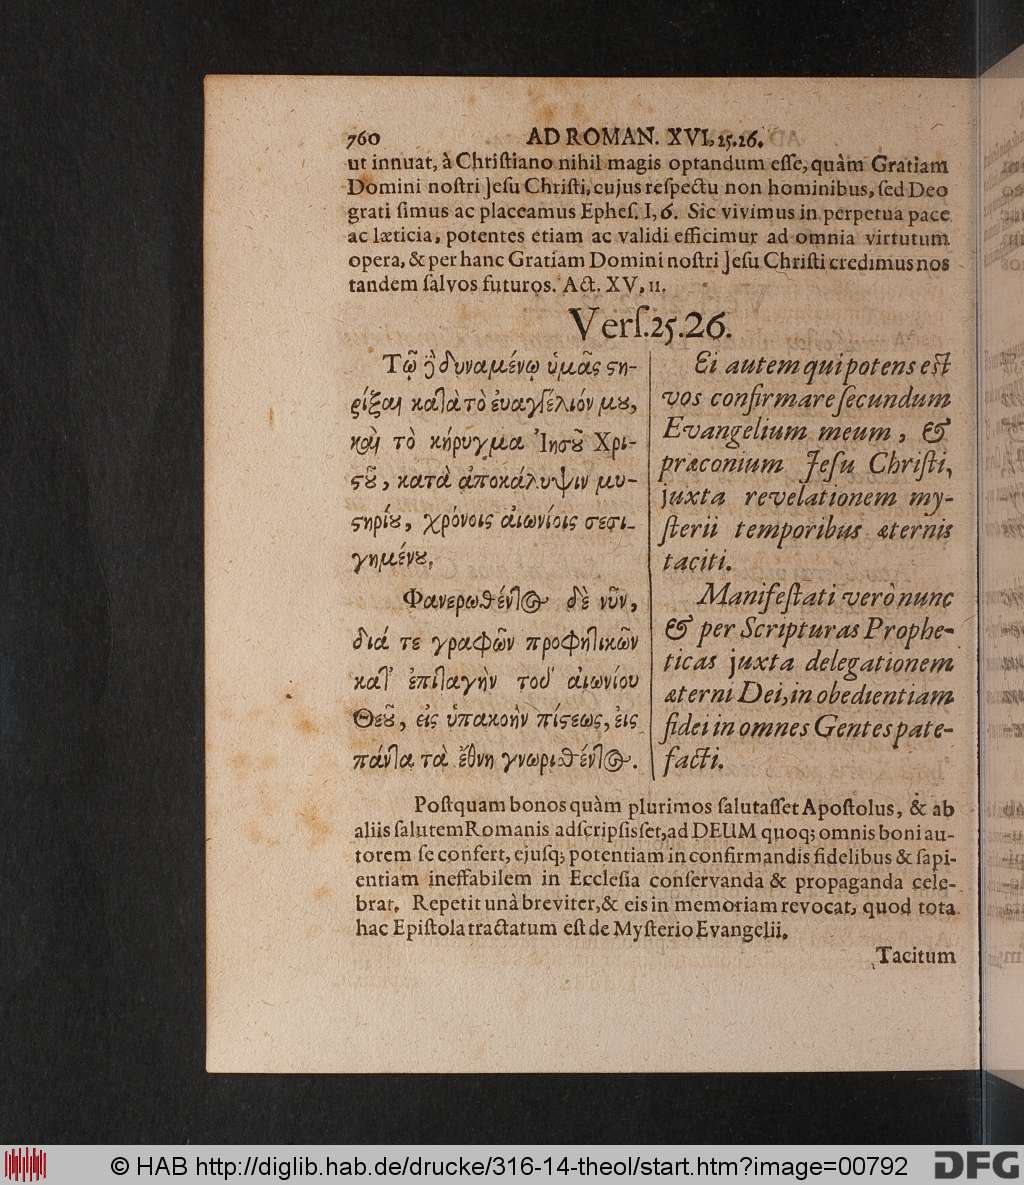 760 AD ROMAN. XVI, 25. 26.
ut innuat, à Chriſtiano nihil magis optandum eſſe, quàm Gratiam
Domini noſtri Jeſu Chriſti, cujus reſpectu non hominibus, ſed Deo
grati ſimus ac placeamus Epheſ. I, 6. Sic vivimus in perpetua pace
ac læticia, potentes etiam ac validi efficimur ad omnia virtutum
opera, & per hanc Gratiam Domini noſtri Jeſu Chriſti credimus nos
tandem ſalvos futuros. Act. XV, 11.
Verſ. 25. 26.
Τῷ δὲ δυναμένῳ ὑμᾶς ϛη-
ρίξαι κατὰ τὸ ἐυαγγέλιόν μȣ,
καὶ τὸ κήρυγμα Ἰησȣ͂ Χρι-
ϛȣ͂, κατὰ ἀποκάλυψιν μυ-
ϛηρίȣ, χρόνοις αἰωνίοις σεσι-
γημένȣ.
Φανερωθέντος δὲ νῦν,
διά τε γραφῶν προφητικῶν
κατ' ἐπιταγὴν τοῦ αἰωνίου
Θεȣ͂, εἰς ὑπακοὴν πίϛεως, ἐις
πάντα τὰ ἔθνη γνωρισθέντος.
Ei autem qui potens est
vos confirmare ſecundum
Evangelium meum, &
præconium Jeſu Chriſti,
juxta revelationem my-
ſterii temporibus æternis
taciti.
Manifeſtati verò nunc
& per Scripturas Prophe-
ticas juxta delegationem
æterni Dei, in obedientiam
fidei in omnes Gentes pate-
facti.
Poſtquam bonos quàm plurimos ſalutaſſet Apoſtolus, & ab
aliis ſalutem Romanis adſcripſiſſet, ad DEUM quoq; omnis boni au-
torem ſe confert, ejuſq; potentiam in confirmandis fidelibus & ſapi-
entiam ineffabilem in Eccleſia conſervanda & propaganda cele-
brat. Repetit unà breviter, & eis in memoriam revocat, quod tota
hac Epiſtola tractatum eſt de Myſterio Evangelii.
Tacitum
© HAB http://diglib.hab.de/drucke/316-14-theol/start.htm?image=00792 DFG